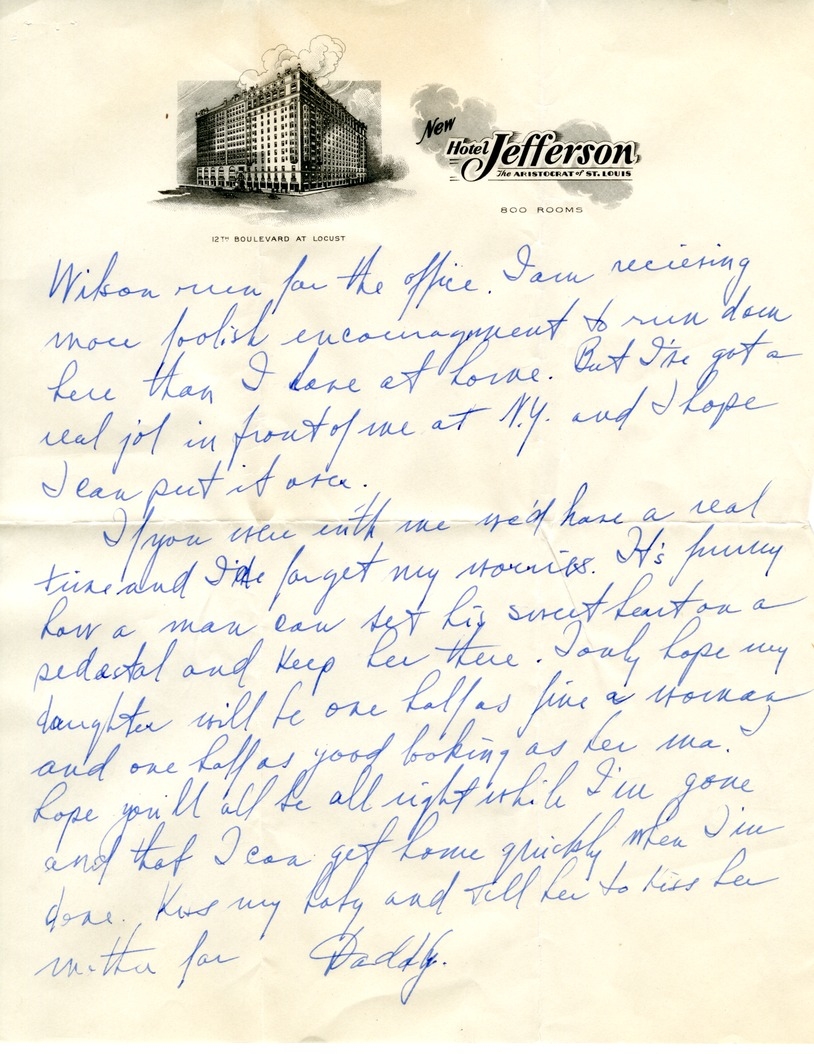 New
Hotel Jefferson
The ARISTOCRAT of ST. LOUIS
800 ROOMS
12TH BOULEVARD AT LOCUST
Wilson run for the office. I am recieving
more foolish encouragment to run down
here than I have at home. But I've got a
real job in front of me at N.Y. and I hope
I can put it over.
If you were with me we'd have a real
time and I'd forget my worries. It's funny
how a man can set his sweetheart on a
pedastal and keep her there. I only hope my
daughter will be one half as fine a woman
and one half as good looking as her ma. I
hope you'll all be all right while I'm gone
and that I can get home quickly when I'm
done. Kiss my baby and tell her to kiss her
mother for Daddy.